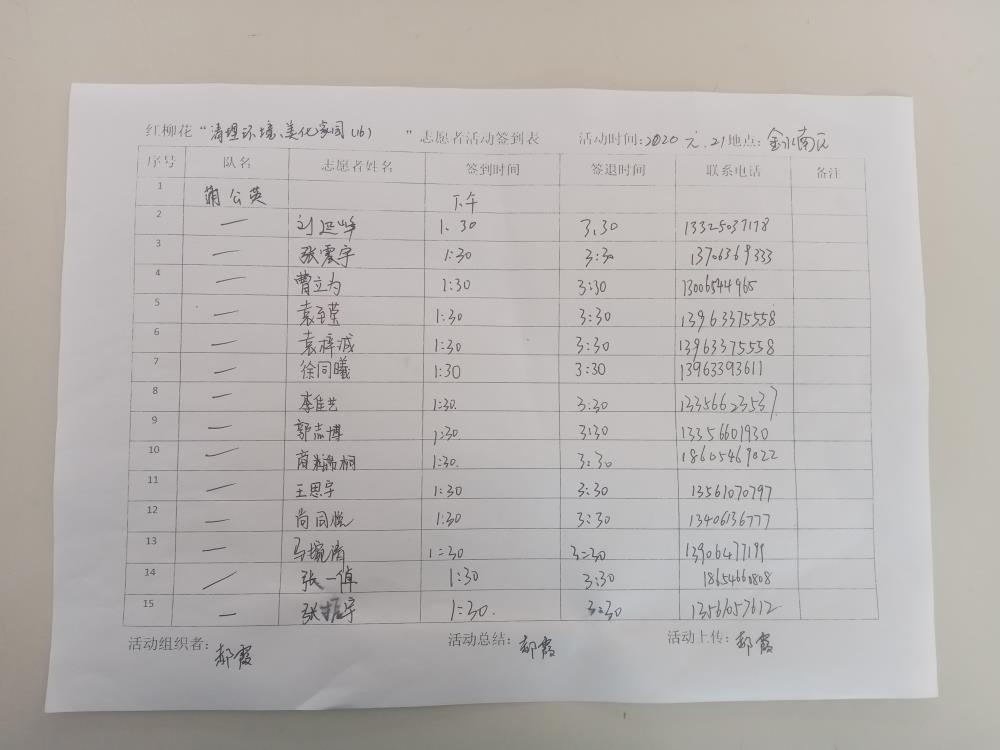 红柳花“清理环境、美化家园(16)”志愿者活动签到表 活动时间:2020 元.21 地点:金水南区
序号 队名 志愿者姓名 签到时间 签退时间 联系电话 备注
1 蒲公英 下午
2 — 刘延峰 1:30 3:30 13325037178
3 — 张震宇 1:30 3:30 13706369333
4 — 曹立为 1:30 3:30 13006544965
5 — 袁至莹 1:30 3:30 13963375558
6 — 袁梓诚 1:30 3:30 13963375558
7 — 徐同曦 1:30 3:30 13963393611
8 — 李佳艺 1:30. 3:30 13356623537
9 — 郭志博 1:30 3:30 13356601930
10 — 1:30. 3:30 18605469022
11 — 王思宇 1:30 3:30 13561070797
12 — 尚同悦 1:30 3:30 13406136777
13 — 1:30 3:30 13906477199
14 — 张一倬 1:30 3:30 18654660808
15 — 张振宇 1:30. 3:30 13561057612
活动组织者:郝霞 活动总结:郝霞 活动上传:郝霞